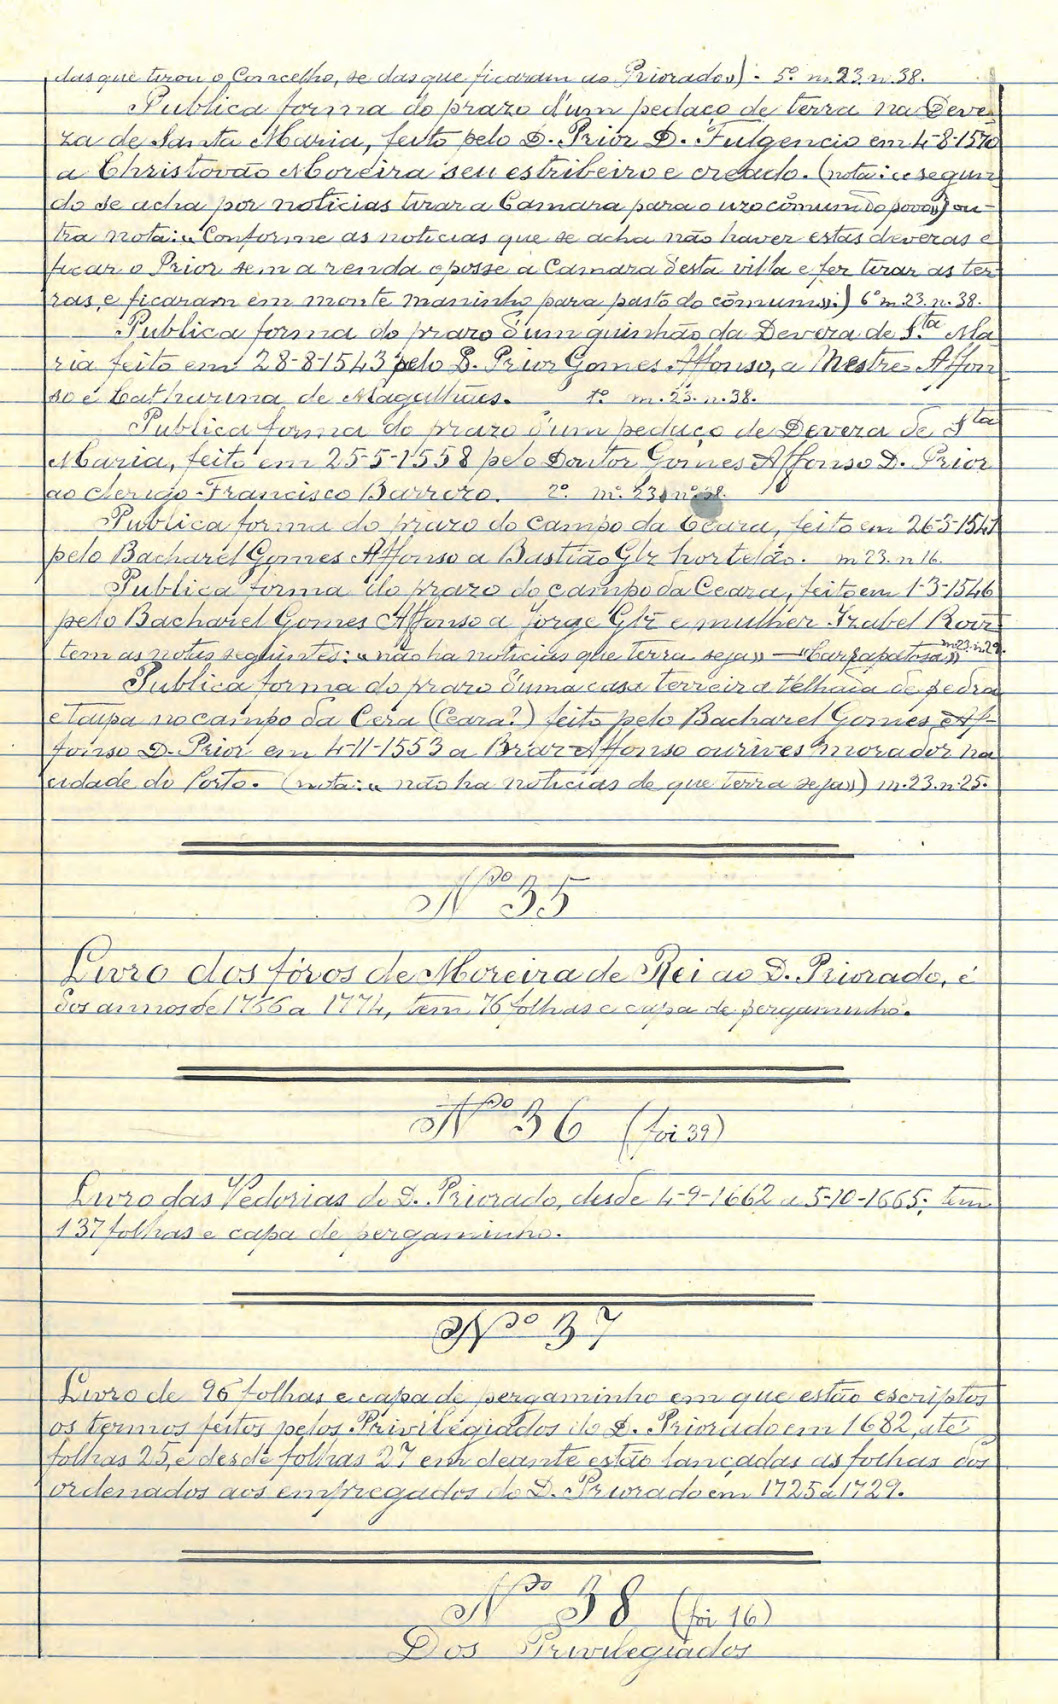 das que tirou o Concelho, se das que ficaram ao Priorado») - 5º m.23.n.38.
Publica forma do prazo d'um pedaço de terra na Deve-
za de Santa Maria, feito pelo D. Prior D. Fulgencio em 4-8-1570
a Christovão Moreira seu estribeiro e creado. (nota: «e segun-
do se acha por noticias tirar a Camara para o uzo cômum do povo») ou-
tra nota: «Conforme as noticias que se acha não haver estas devezas e
ficar o Prior sem a renda e posse a Camara desta villa e fez tirar as ter-
ras, e ficaram em monte maninho para pasto do cômum») 6º m.23.n.38.
Publica forma do prazo d'um quinhão da Deveza de S.ta Ma-
ria feito em 28-8-1543 pelo D. Prior Gomes Affonso, a Mestre Affon-
so e Catharina de Magalhães. 1º m.23.n.38.
Publica forma do prazo d'um pedaço de Deveza de S.ta
Maria, feito em 25-5-1558 pelo Doutor Gomes Affonso D. Prior
ao clerigo Francisco Barrozo. 2º m. 23, nº 38.
Publica forma do prazo do campo da Ceara, feito em 26-5-1541
pelo Bacharel Gomes Affonso a Bastião Glz hortelão. m 23. n 16.
Publica forma do prazo do campo da Ceara, feito em 1-3-1546
pelo Bacharel Gomes Affonso a Jorge Glz e mulher Izabel Roiz
tem as notas seguintes: «não ha noticias que terra seja» — «Carrapatosa» m 23. n 29.
Publica forma do prazo d'uma casa terreira telhada de pedra
e taipa no campo da Cera (Ceara?) feito pelo Bacharel Gomes Af-
fonso D. Prior em 4-11-1553 a Braz Affonso ourives morador na
cidade do Porto. (nota: « não ha noticias de que terra seja») m.23.n.25.
Nº 35
Livro dos fóros de Moreira de Rei ao D. Priorado, é
dos annos de 1756 a 1774, tem 76 folhas e capa de pergaminho.
Nº 36 (foi 39)
Livro das Vedorias do D. Priorado, desde 4-9-1662 a 5-10-1665; tem
137 folhas e capa de pergaminho.
Nº 37
Livro de 96 folhas e capa de pergaminho em que estão escriptos
os termos feitos pelos Privilegiados do D. Priorado em 1682, até
folhas 25, e desde folhas 27 em deante estão lançadas as folhas dos
ordenados aos empregados do D. Priorado em 1725 a 1729.
Nº 38 (foi 16)
Dos Privilegiados